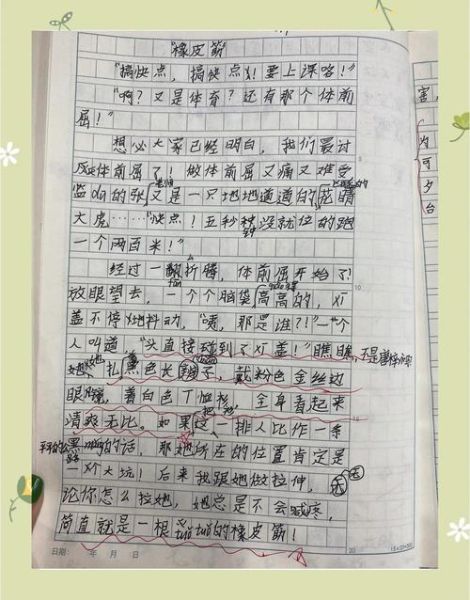 "橡皮筋"
"搞快点，搞快点！要上课咯！"
"啊？又是体育？还有那个体前
屈！"
想必大家已经明白，我们最讨
厌体前屈了！做体前屈又痛又难受
的张又是一只地地道道的花睛
老师
大虎……"快点！五秒钟没就位的跑
一个两百米！"
经过一翻折腾，体前屈开始了！
fān
放眼望去，一个个脑袋高高的，
盖不停地抖动，"咦，那是谁？！"一个
人叫道，"头直接碰到了膝盖！"瞧瞧，
她扎黑色长，戴粉色金丝边
眼镜，着白色T恤衫，全身看起来
清爽无比。如果这一排人比作一条
的话，那她所在的位置肯定是
个大坑！后来我跟她做拉伸，无
论你怎么拉她，她总是不会喊疼，
简直就是一根的橡皮筋！
日期： 年 月 日
害，
为
可
夕
台